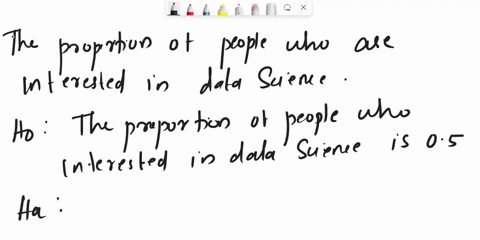 The proportion of people who are
interested in data Science.
Ho: The proportion of people who
interested in data Science is 0.5
Ha: